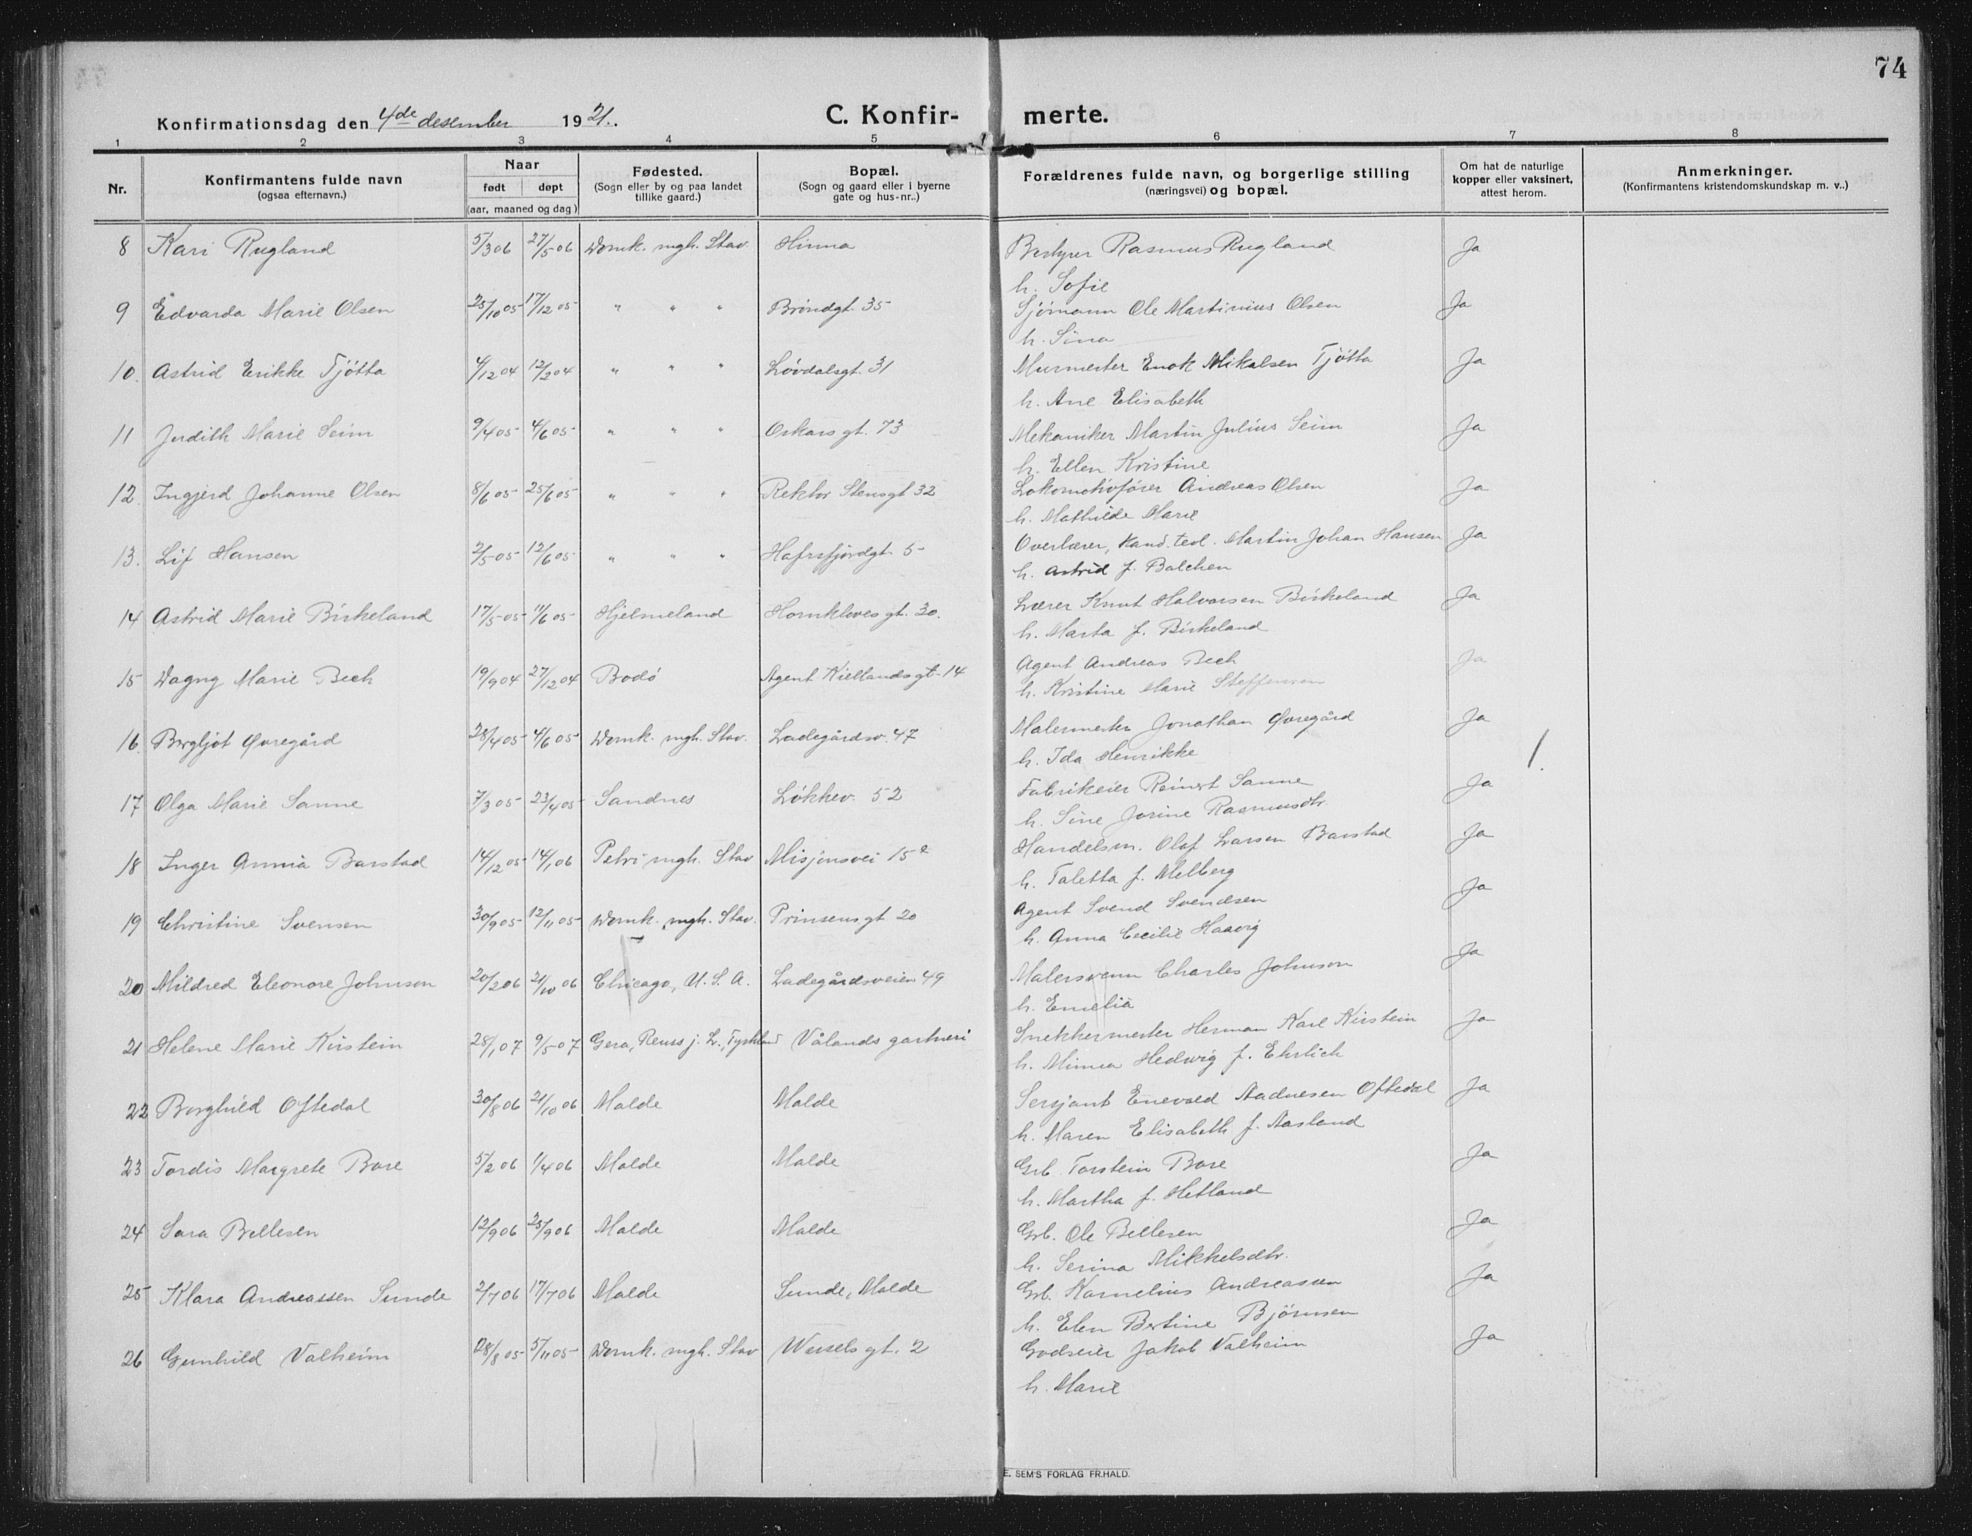 74
Konfirmationsdag den 4de desember 1921. C. Konfir- merte.
1 2 3 4 5 6 7 8
Nr. Konfirmantens fulde navn (ogsaa efternavn.) Naar født døpt (aar, maaned og dag) Fødested. (Sogn eller by og paa landet tillike gaard.) Bopæl. (Sogn og gaard eller i byerne gate og hus-nr..) Forældrenes fulde navn, og borgerlige stilling (næringsvei) og bopæl. Om hat de naturlige kopper eller vaksinert, attest herom. Anmerkninger. (Konfirmantens kristendomskundskap m. v..)
8 Kari Rugland 5/3 06 27/5 06 Domk. mgh. Stav. Hinna Bestyrer Rasmus Rugland Ja
h. Sofie
9 Edvarda Marie Olsen 25/10 05 17/12 05 " " " Brøndgt. 35 Sjømann Ole Martinius Olsen Ja
h. Sina
10. Astrid Erikke Tjøtta 4/12 04 12/2 04 " " " Løvdalsgt. 31 Murmester Enok Mikalsen Tjøtta Ja
h. Ane Elisabeth
11 Judith Marie Seim 9/4 05 4/6 05 " " " Oskarsgt. 73 Mekaniker Martin Julius Seim Ja
h. Ellen Kristine
12 Ingjerd Johanne Olsen 8/6 05 25/6 05 " " " Rektor Stensgt 32 Lokomotivfører Andreas Olsen Ja
h. Mathilde Marie
13. Lif Hansen 2/5 05 12/6 05 " " " Hafrsfjordgt. 5 Overlærer, kand. teol. Martin Johan Hansen Ja
h. Astrid f. Balchen
14 Astrid Marie Birkeland 17/5 05 11/6 05 Hjelmeland Hornklovesgt. 30. Lærer Knut Halvorsen Birkeland Ja
h. Marta f. Birkeland
15 Dagny Marie Bech 19/9 04 27/12 04 Bodø Agent Kiellandsgt. 14 Agent Andreas Bech Ja
h. Kristine Marie Steffensen
16 Bergljot Øvregård 28/4 05 4/6 05 Domk. mgh. Stav. Ladegårdsv. 47 Malermester Jonathan Øvregård Ja
h. Ida Henrikke 1.
17 Olga Marie Sanne 7/3 05 23/4 05 Sandnes Løkkev. 52 Fabrikeier Reinert Sanne Ja
h. Sine Jorine Rasmusdtr
18 Inger Annia Barstad 14/12 05 14/1 06 Petri mgh. Stav Misjonsvei 15a Handelsm. Olaf Larsen Barstad Ja
h. Taletta f. Melberg
19 Christine Svensen 30/9 05 12/11 05 Domk. mgh. Stav. Prinsensgt 20 Agent Svend Svendsen Ja
h. Anna Cecilie Haavig
20 Mildred Eleonore Johnson 20/2 06 21/10 06 Chicago, U. S. A. Ladegårdsveien 49 Malersvenn Charles Johnson Ja
h. Emelia
21 Helene Marie Kirstein 28/1 07 9/5 07 Gera, Reuss j. L., Tyskland Vålands gartneri Snekkermester Herman Karl Kirstein Ja
h. Minna Hedwig f. Ehrlich
22 Borghild Oftedal 30/8 06 21/10 06 Malde Malde Sersjant Enevald Aadnesen Oftedal Ja
h. Maren Elisabeth f. Aasland
23 Tordis Margrete Bore 5/2 06 1/4 06 Malde Malde Grb. Torstein Bore Ja
h. Martha f. Hetland
24 Sara Bellesen 12/9 06 25/9 06 Malde Malde Grb. Ole Bellesen Ja
h. Serina Mikkelsdtr.
25 Klara Andreassen Sunde 2/7 06 17/7 06 Malde Sunde, Malde Grb. Kornelius Andreassen Ja
h. Elen Bertine Bjørnsen
26 Gunhild Valheim 28/8 05 5/11 05 Domk. mgh. Stav Wesselsgt. 2 Godseier Jakob Valheim Ja
h. Marie
E. SEM'S FORLAG FR.HALD.